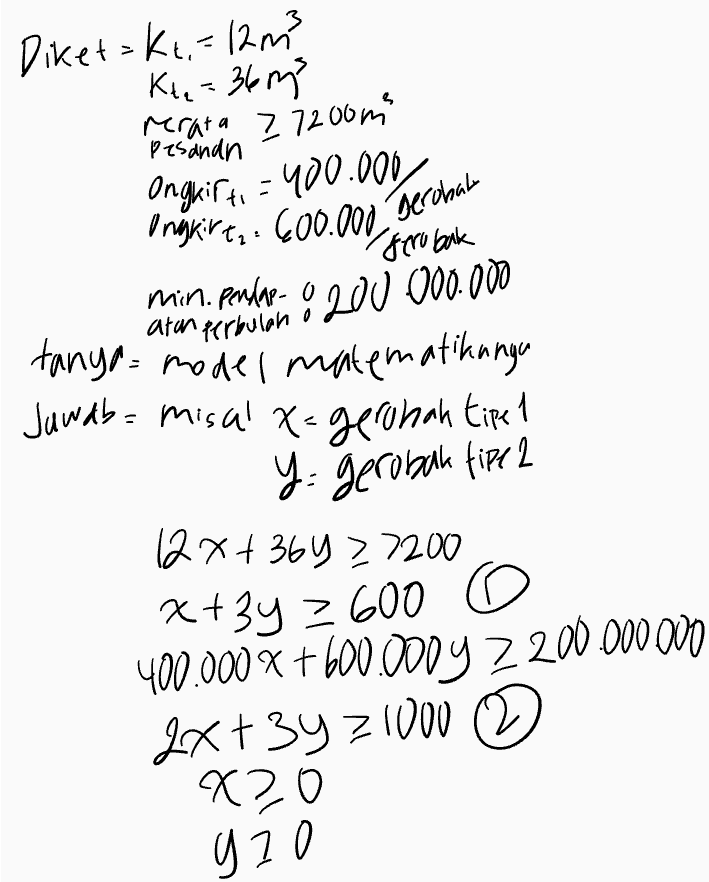 Diket = Kt₁ = 12m³
Kt₂ = 36m³
rerata pesanan ≥ 7200m³
Ongkir t₁ = 400.000/gerobak
Ongkir t₂ = 600.000/gerobak
min. pendap-atan perbulan : 200.000.000
tanya = model matematikanya
Jawab = misal x = gerobak tipe 1
y = gerobak tipe 2
12x + 36y ≥ 7200
x + 3y ≥ 600 ①
400.000x + 600.000y ≥ 200.000.000
2x + 3y ≥ 1000 ②
x ≥ 0
y ≥ 0